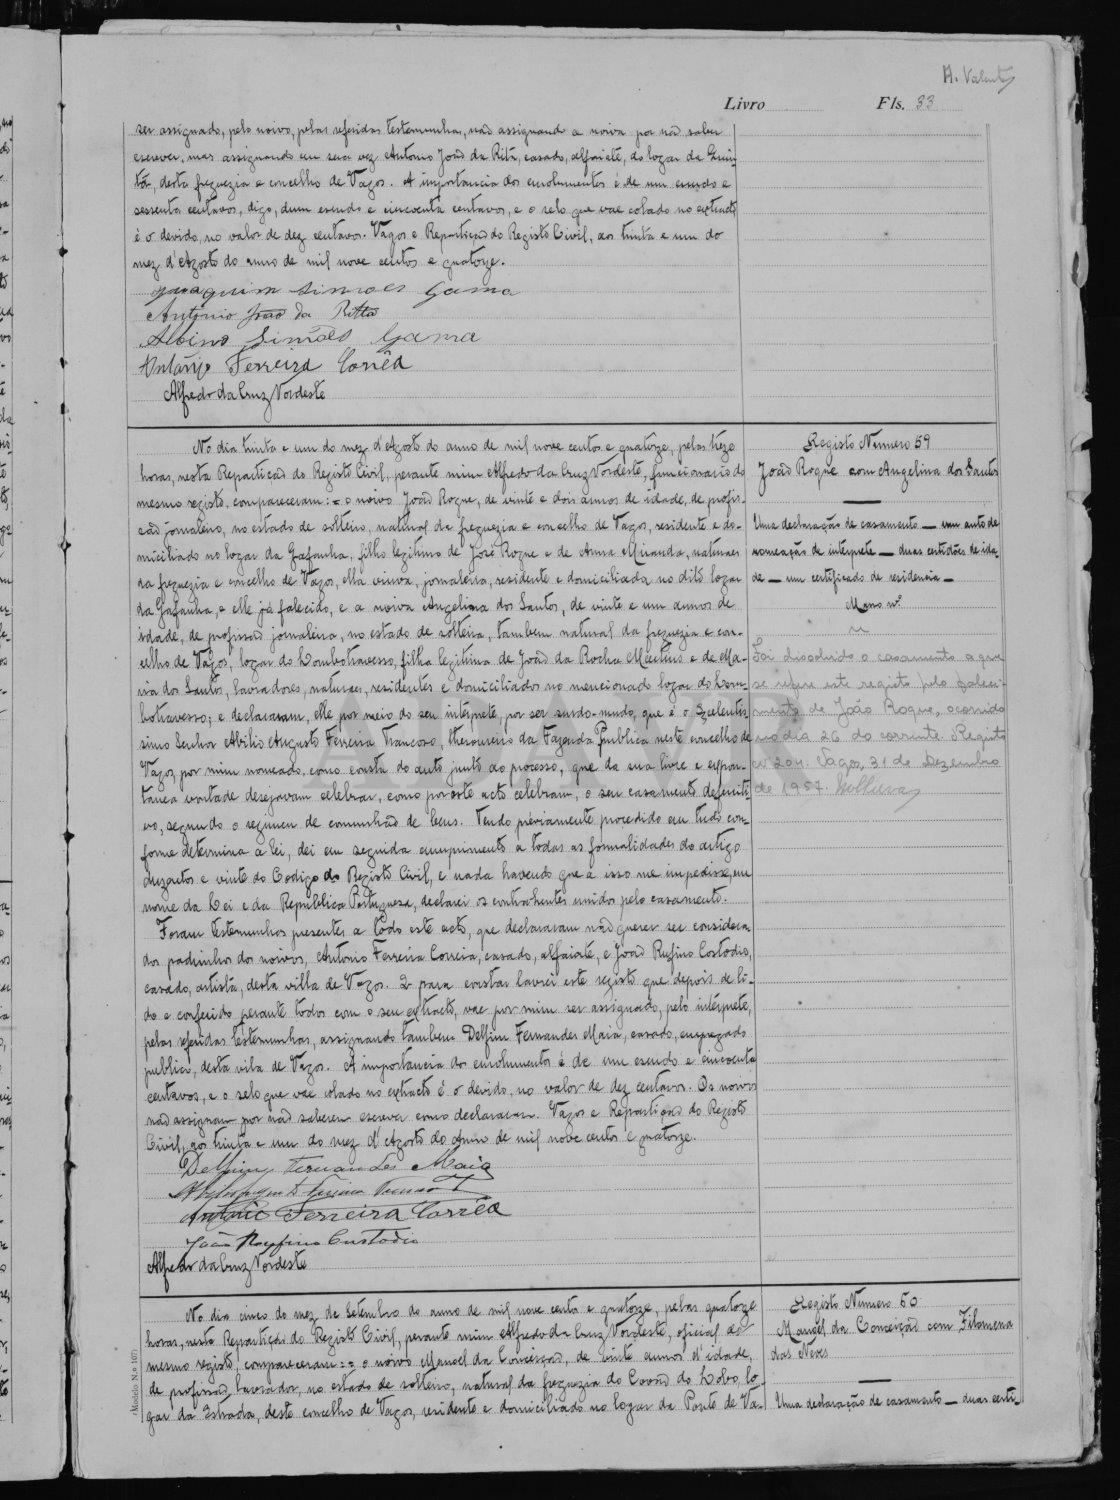 Livro Fls. 33
ser assignado, pelo noivo, pelas referidas testemunhas, não assignando a noiva por não saber
escrever, mas assignando em seu vez Antonio João da Ritta, casado, alfaiate, do logar da Quin-
tã, desta freguezia e concelho de Vagos. A importancia dos emolumentos é de um escudo e
sessenta centavos, digo, dum escudo e cincoenta centavos, e o selo que vae colado no extracto
é o devido, no valor de dez centavos. Vagos e Repartição do Registo Civil, aos trinta e um do
mez d'Agosto do anno de mil nove centos e quatorze.
Joaquim Simoes Gama
Antonio João da Ritta
Albino Simões Gama
António Ferreira Corrêa
Alfredo da Cruz Nordeste
No dia trinta e um do mez d'Agosto do anno de mil nove centos e quatorze, pelas treze
horas, nesta Repartição do Registo Civil, perante mim Alfredo da Cruz Nordeste, funcionario do
mesmo registo, compareceram: = o noivo João Roque, de vinte e dois annos de idade, de profis-
são jornaleiro, no estado de solteiro, natural da freguezia e concelho de Vagos, residente e do-
miciliado no logar da Gafanha, filho legitimo de José Roque e de Anna Miranda, naturaes
da freguezia e concelho de Vagos, ella viuva, jornaleira, residente e domiciliada no dito logar
da Gafanha, e elle já falecido, e a noiva Angelina dos Santos, de vinte e um annos de
idade, de profissão jornaleira, no estado de solteira, tambem natural da freguezia e con-
celho de Vagos, logar do Lombotravesso, filha legitima de João da Rocha Martins e de Ma-
ria dos Santos, lavradores, naturaes, residentes e domiciliados no mencionado logar do Lom-
botravesso; e declararam, elle por meio do seu interprete, por ser surdo-mudo, que é o Excelentis-
simo Senhor Abilio Augusto Ferreira Trancoso, thesoureiro da Fazenda Publica neste concelho de
Vagos, por mim nomeado, como consta do auto junto ao processo, que da sua livre e espon-
tanea vontade desejavam celebrar, como por este acto celebram, o seu casamento definiti-
vo, segundo o regimen de comunhão de bens. Tendo préviamente procedido em tudo con-
forme determina a lei, dei em seguida cumprimento a todas as formalidades do artigo
duzentos e vinte do Codigo do Registo Civil, e nada havendo que a isso me impedisse, em
nome da Lei e da Republica Portugueza, declarei os contrahentes unidos pelo casamento.
Foram testemunhas presentes a todo este acto, que declararam não querer ser considera-
dos padrinhos dos noivos, Antonio Ferreira Correia, casado, alfaiate, e João Rufino Costodio,
casado, artista, desta villa de Vagos. E para constar lavrei este registo que depois de li-
do e conferido perante todos com o seu extracto, vae por mim ser assignado, pelo intérprete,
pelas referidas testemunhas, assignando tambem Delfim Fernandes Maia, casado, empregado
publico, desta vila de Vagos. A importancia dos emolumentos é de um escudo e cincoenta
centavos, e o selo que vae colado no extracto é o devido, no valor de dez centavos. Os noivos
não assignam por não saberem escrever como declararam. Vagos e Repartição do Registo
Civil, aos trinta e um do mez d'Agosto do anno de mil nove centos e quatorze.
Delfim Fernandes Maia
Abilio Augusto Ferreira Trancoso
António Ferreira Corrêa
João Rufino Custodio
Alfredo da Cruz Nordeste
Registo Numero 59
João Roque com Angelina dos Santos
Uma declaração de casamento — um auto de
nomeação de interprete — duas certidões de ida-
de — um certificado de residencia —
Maso nº.
Foi dissolvido o casamento a que
se refere este registo pelo faleci-
mento de João Roque, ocorrido
no dia 26 do corrente. Registo
nº 204. Vagos, 31 de Dezembro
de 1957.
No dia cinco do mez de Setembro do anno de mil nove centos e quatorze, pelas quatorze
horas, nesta Repartição do Registo Civil, perante mim Alfredo da Cruz Nordeste, oficial do
mesmo registo, compareceram: = o noivo Manoel da Conceição, de vinte annos d'idade,
de profissão lavrador, no estado de solteiro, natural da freguezia do Covão do Lobo, lo-
gar da Estrada, deste concelho de Vagos, residente e domiciliado no logar da Ponte de Va-
Registo Numero 60
Manoel da Conceição com Filomena
das Neves
Uma declaração de casamento — duas certi-
(Modelo N.º 107)